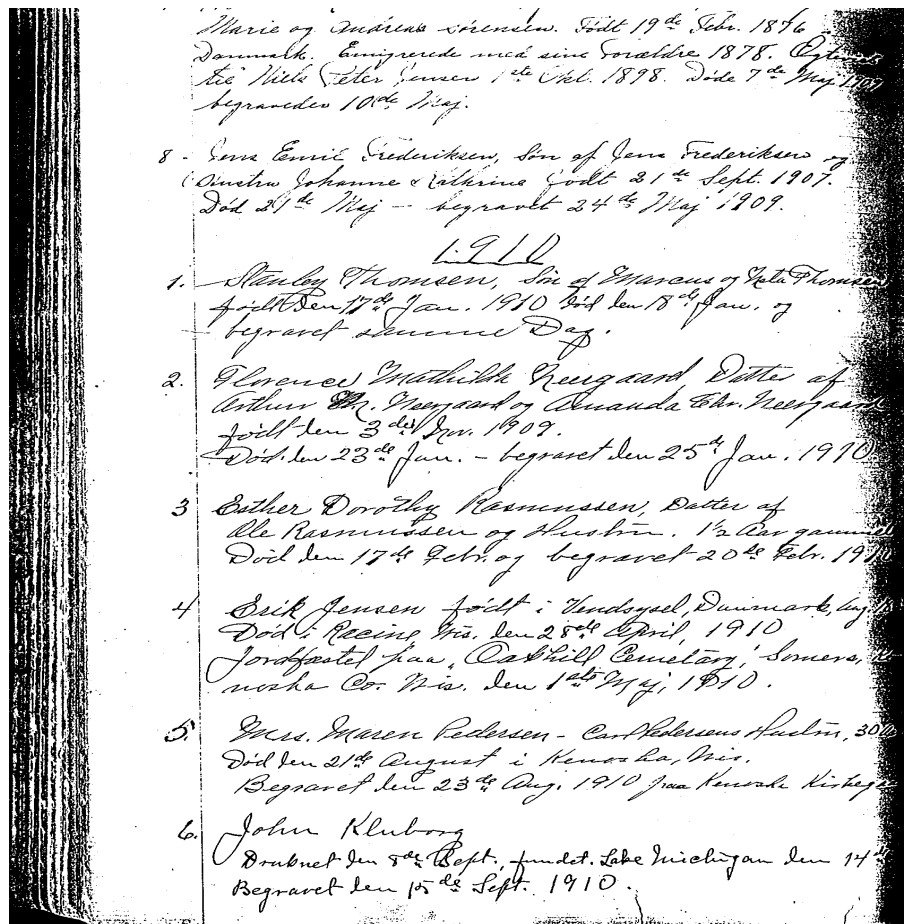 Marie og Andreas Sørensen. Født 19de Febr. 1876
Danmark. Emigrerede med sine Forældre 1878.
til Niels Peter Jensen 1ste Okt. 1898. Døde 7de Maj 1909
begravedes 10de Maj.
8 - Jens Emil Frederiksen, Søn af Jens Frederiksen og
Hustru Johanne Kathrine født 21de Sept. 1907.
Død 21de Maj - begravet 24de Maj 1909.
1910
1. Stanley Thomsen, Søn af Marcus og Thomsen
født den 17de Jan. 1910 død den 18de Jan. og
begravet samme Dag.
2. Florence Mathilde Neergaard, Datter af
Arthur M. Neergaard og Amanda Chr. Neergaard
født den 3de Nov. 1909.
Død den 23de Jan. - begravet den 25de Jan. 1910
3 Esther Dorothy Rasmussen, Datter af
Ole Rasmussen og Hustru. 1½ Aar gammel
Død den 17de Febr. og begravet 20de Febr. 1910
4 Erik Jensen født i Vendsysel, Danmark, Aug.
Død i Racine, Wis. den 28de April, 1910
Jordfæstet paa "Oakhill Cemetary," Somers,
nosha Co. Wis. den 1ste Maj, 1910.
5. Mrs. Maren Pedersen - Carl Pedersens Hustru, 30
Død den 21de August i Kenosha, Wis.
Begravet den 23de Aug. 1910 paa Kenosha Kirkeg
6. John Kluborg
Druknet den 8de Sept. fundet. Lake Michigan den 14de
Begravet den 15de Sept. 1910.